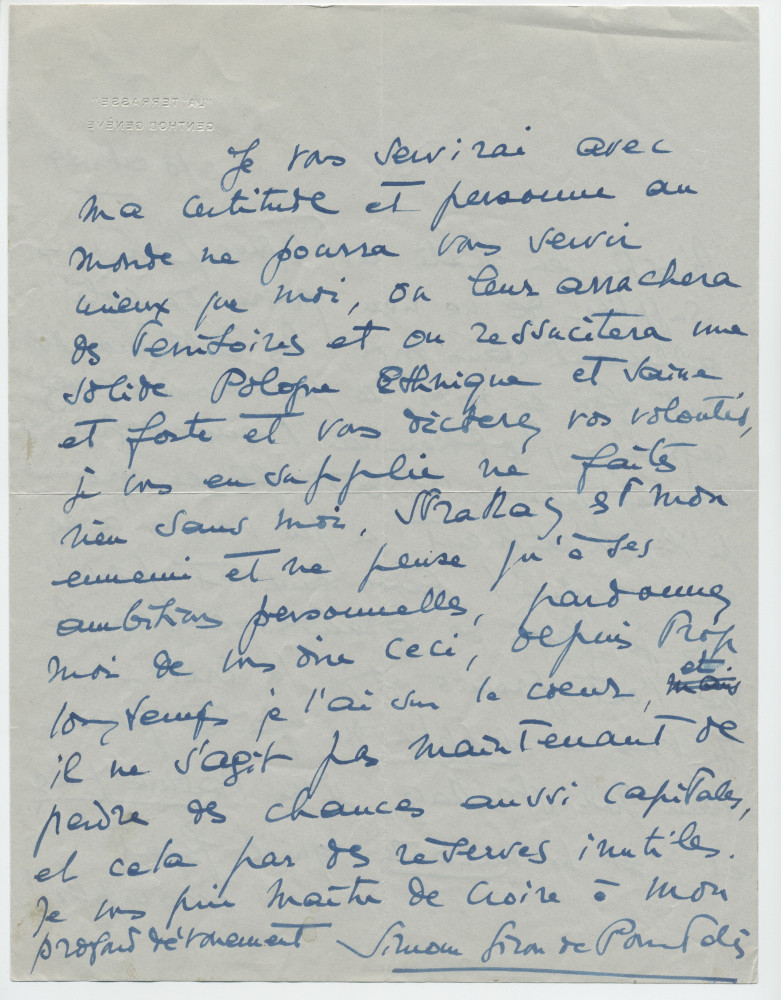 "LA TERRASSE"
GENTHOD GENÈVE
Je vous servirai avec
ma certitude et personne au
monde ne pourra vous servir
mieux que moi, on leur arrachera
des Territoires et on ressucitera une
solide Pologne Ethnique et saine
et forte et vous dicterez vos volontés,
je vous en supplie ne faites
rien sans moi, est mon
ennemi et ne pense qu'à ses
ambitions personnelles, pardonnez
moi de vous dire ceci, depuis trop
longtemps je l'ai sur le coeur, mais et
il ne s'agit pas maintenant de
perdre des chances aussi capitales,
et cela par des réserves inutiles.
Je vous prie Maître de croire à mon
profond dévouement Simone Giron de